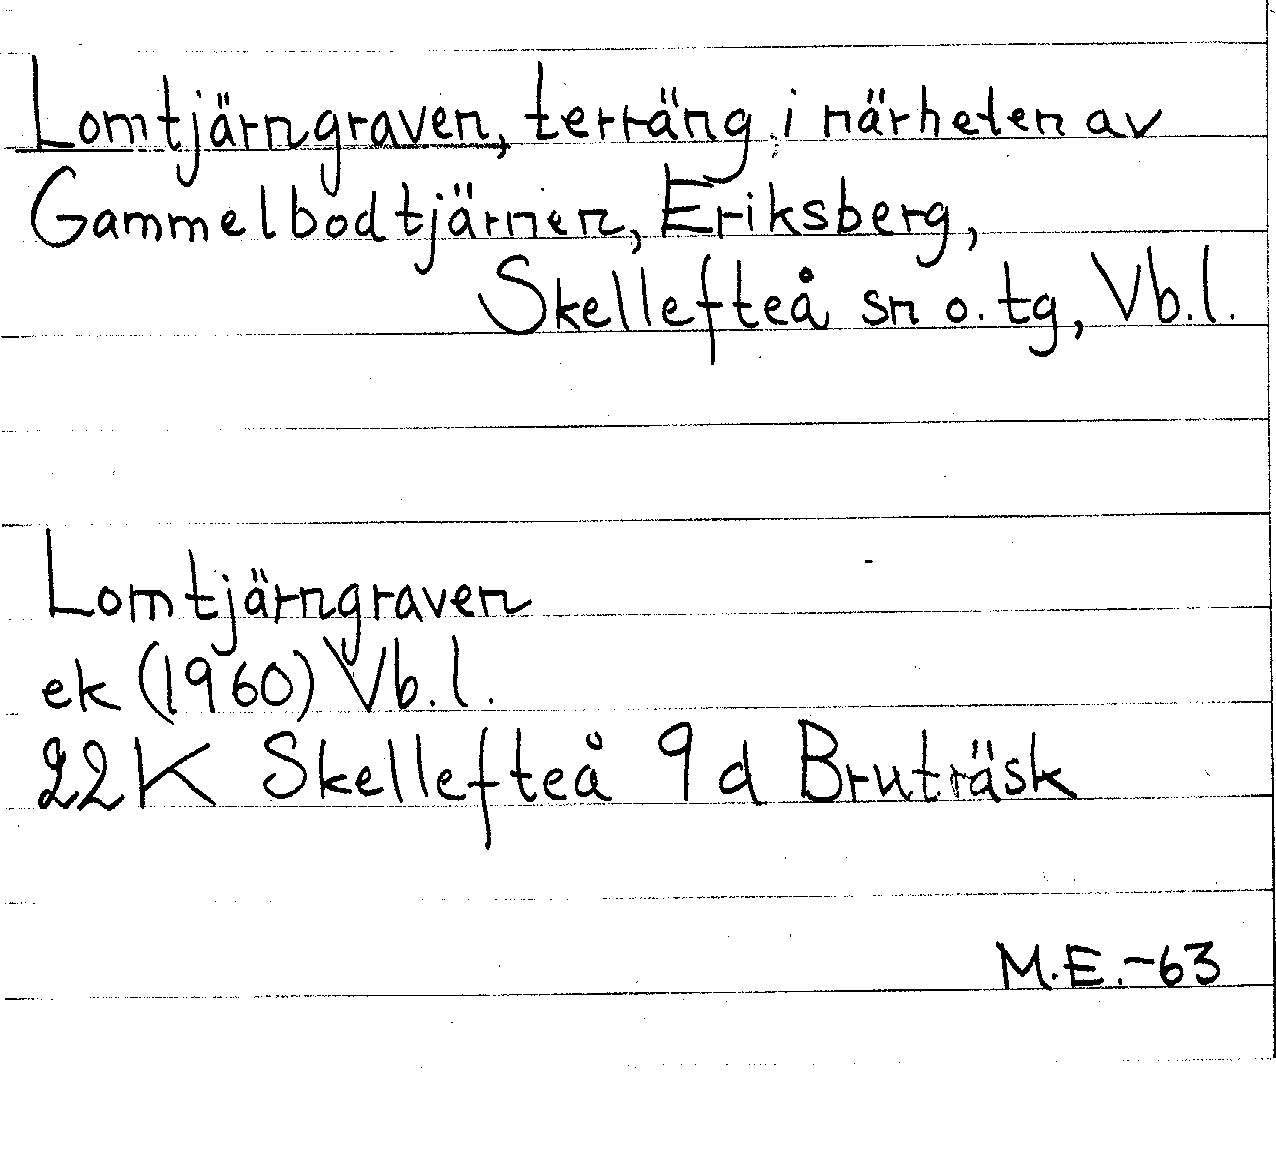 Lomtjärngraven, terräng i närheten av
Gammelbodtjärnen, Eriksberg,
Skellefteå sn o. tg, Vb.l.
Lomtjärngraven
ek (1960) Vb.l.
22K Skellefteå 9d Bruträsk
M.E.-63